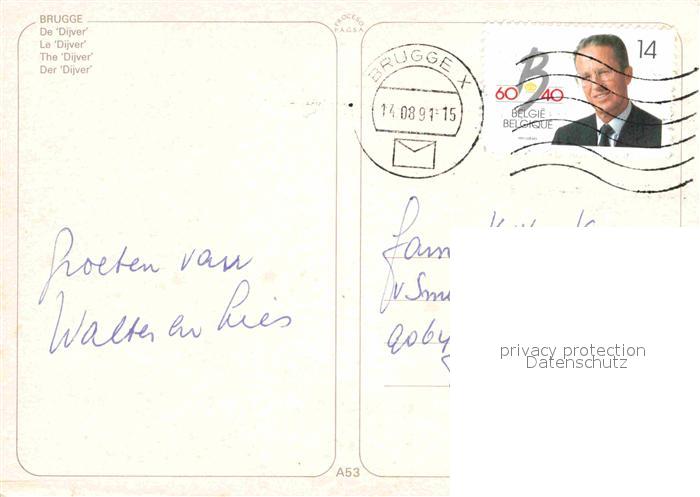 BRUGGE
De 'Dijver'
Le 'Dijver'
The 'Dijver'
Der 'Dijver'
PROCESO
P.A.G.S.A.
BRUGGE X
14 08 91-15
B
60 40
14
BELGIË
BELGIQUE
Groeten van
Walter en Lies
Fam
9064
A53
privacy protection
Datenschutz